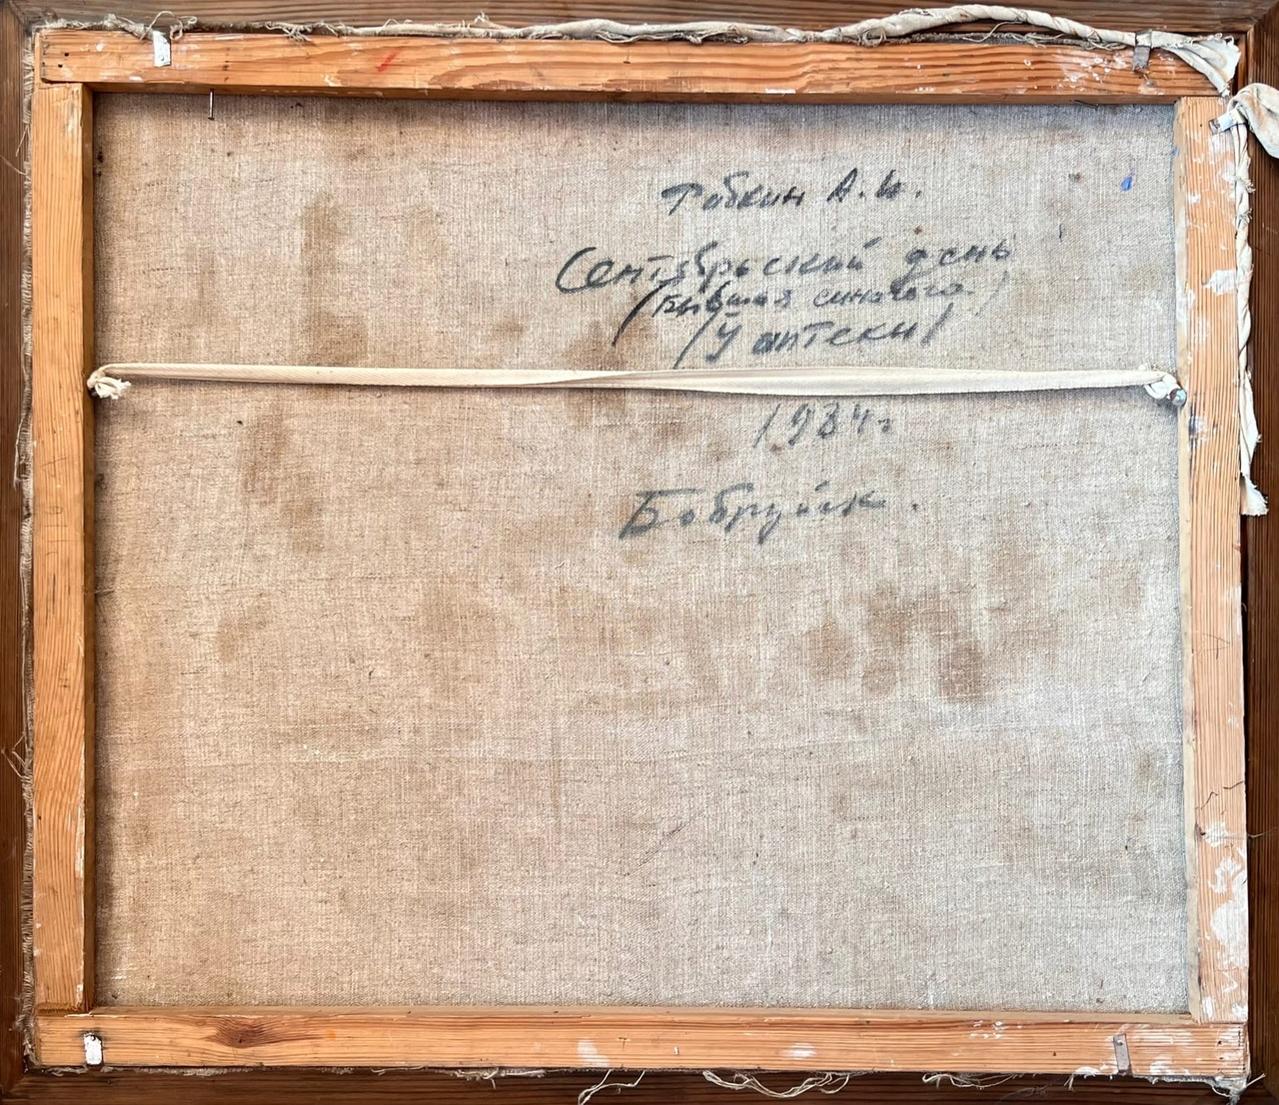 Рабкин А.И.
Сентябрьский день
(Бывшая синагога)
(У аптеки)
1984г
Бобруйск.